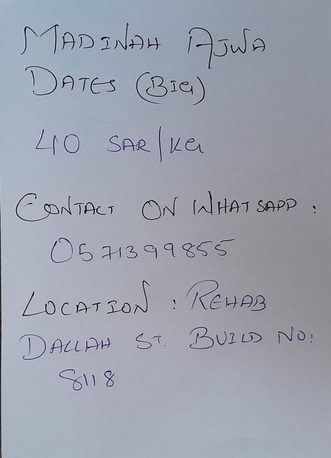 MADINAH AJWA
DATES (BIG)
40 SAR/KG
CONTACT ON WHATSAPP :
0571399855
LOCATION : REHAB
DALLAH ST. BUILD NO:
8118